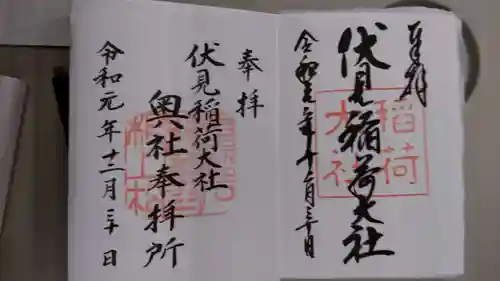 奉拝
伏見稲荷大社
令和元年十二月三十日
稲荷
大社
奉拝
伏見稲荷大社
奥社奉拝所
令和元年十二月三十日